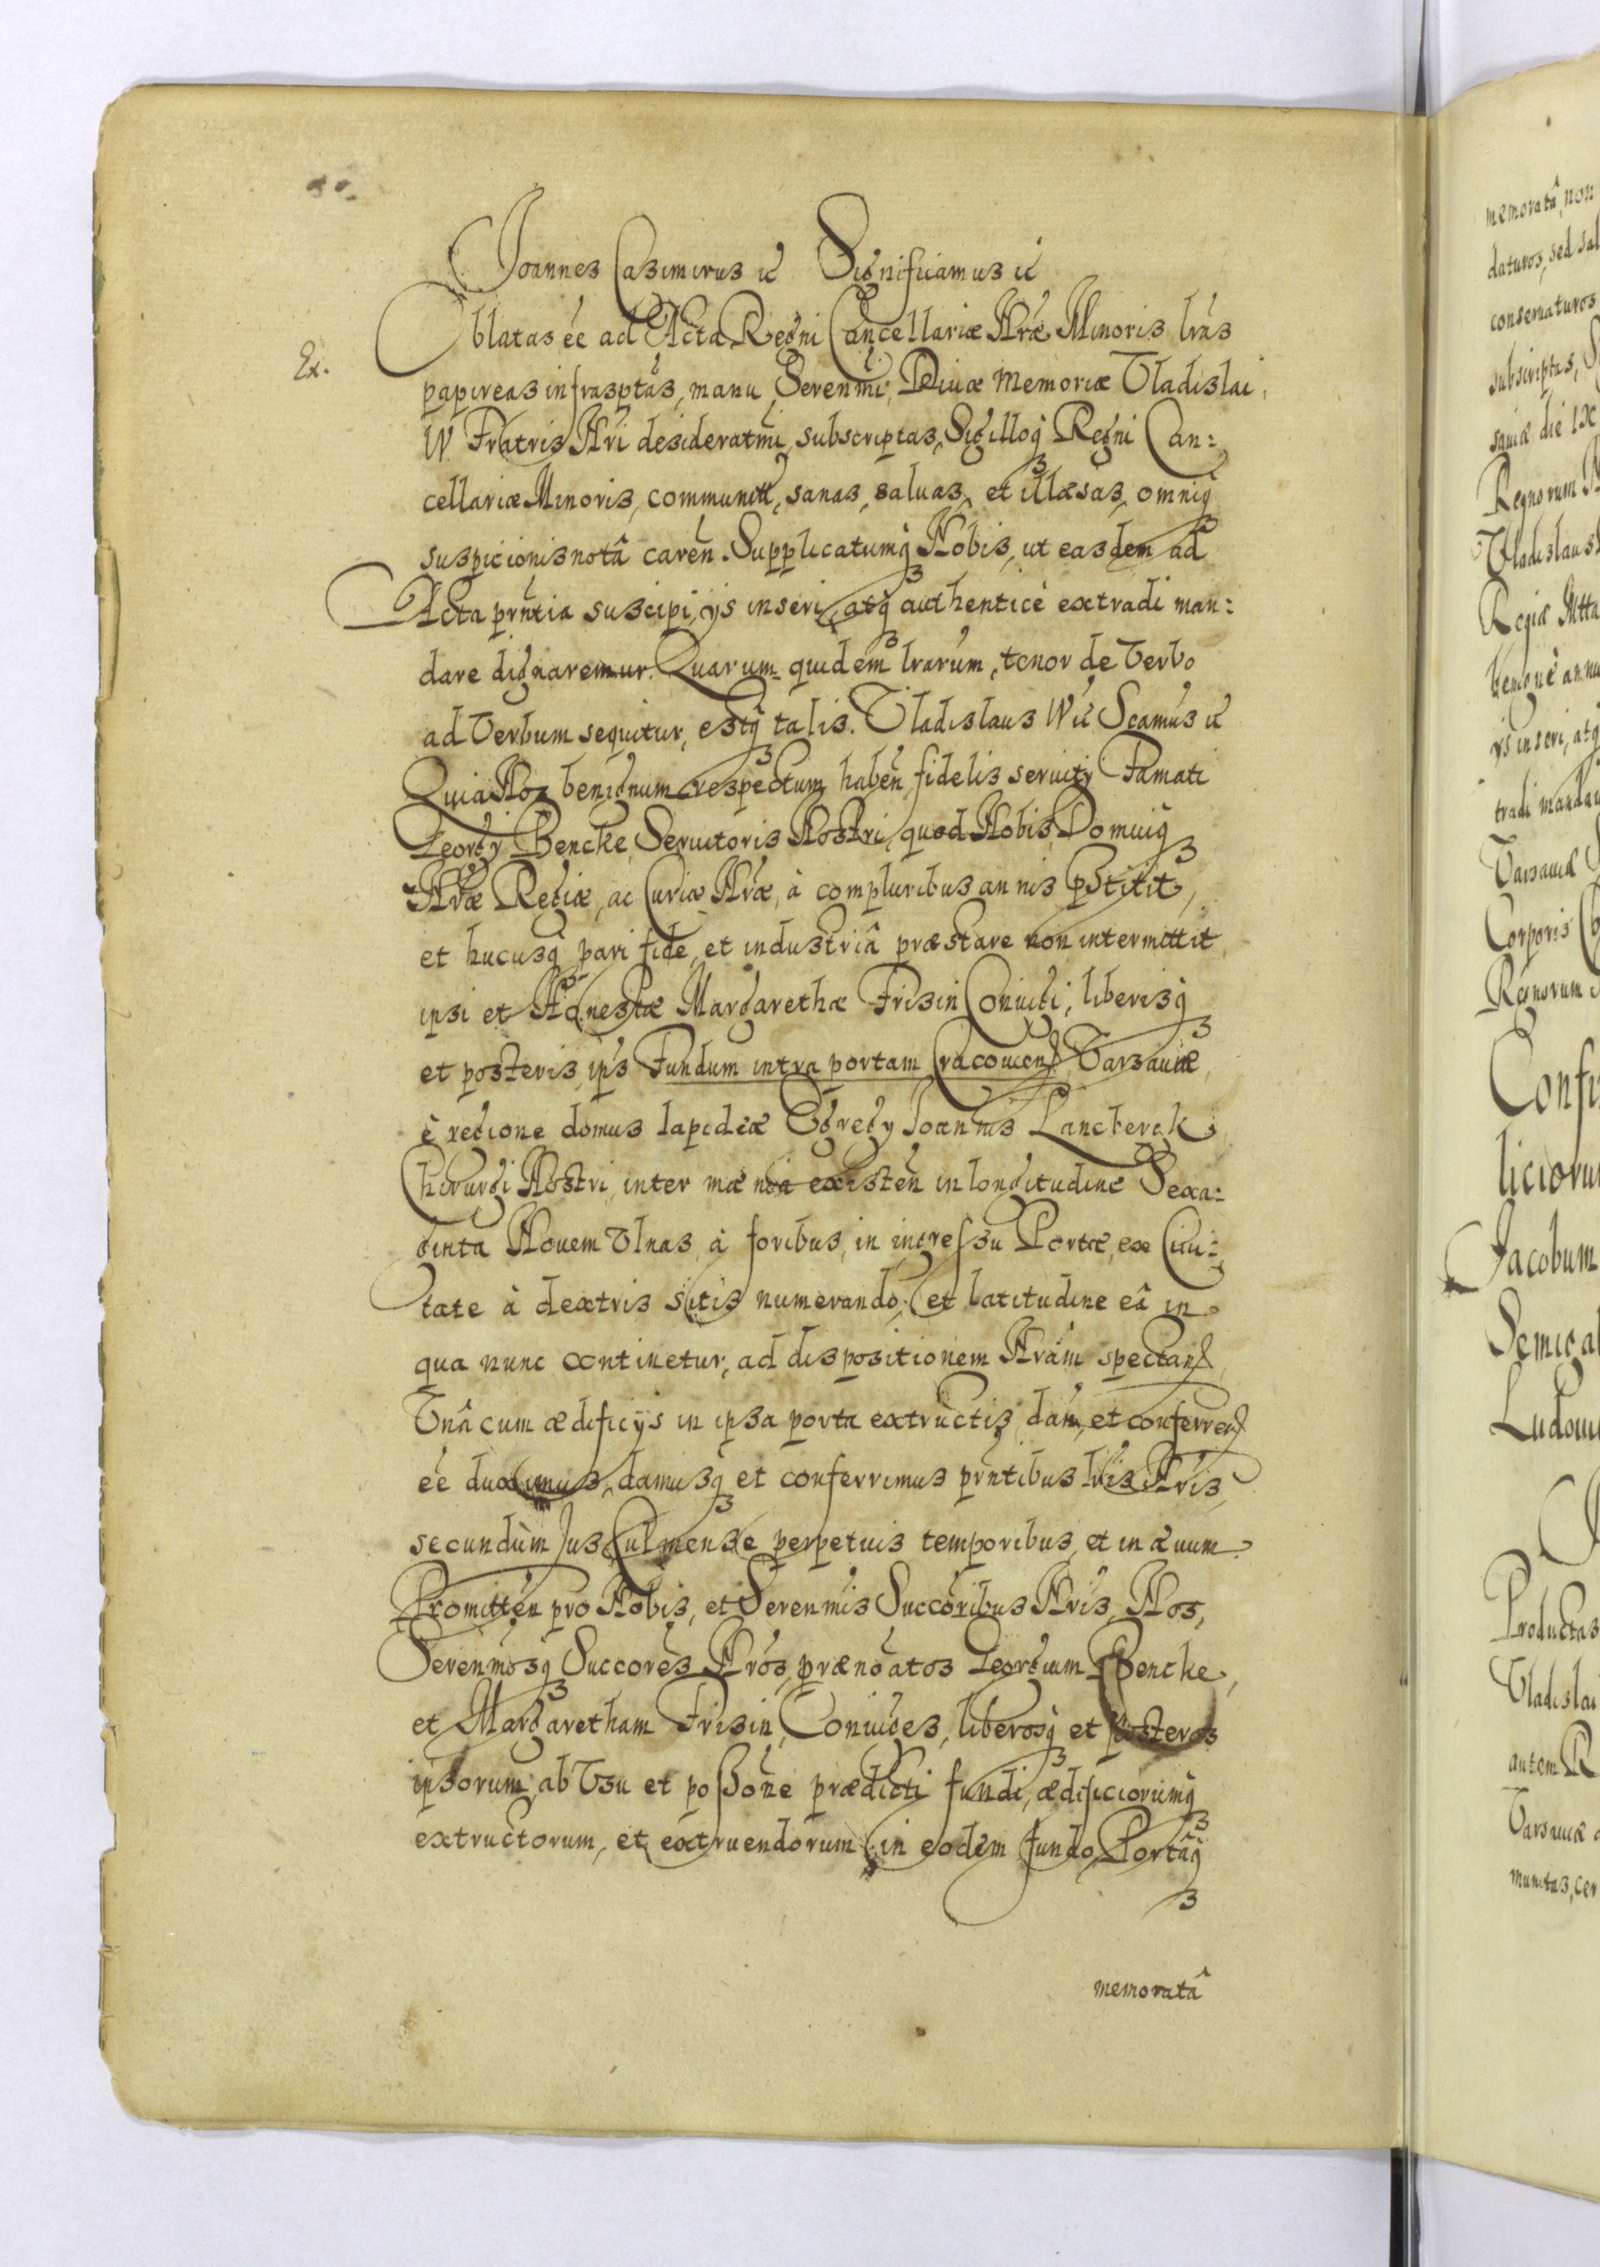 Joannes Casimirus ec Significamus ec
Oblatas ee ad Acta Regni Cancellariæ Nræ Minoris lras
Ex.
papireas infrasptas, manu Serenmi, Divæ memoriæ Vladislai
IV Fratris Nri desideratmi subscriptas, Sigilloq3 Regni Can:
cellariæ Minoris, communitt, sanas, saluas, et illæsas, omniq3
suspicionis notâ caren. Supplicatumq3 Nobis, ut easdem ad
Acta prntia suscipi, ijs inseri, atq3 authenticè extradi man:
dare dignaremur. Quarum quidem lrarum, tenor de Verbo
ad Verbum sequitur, estq3 talis. Vladislaus IV ec Scamus ec
Quia Nos benignum respectum haben fidelis seruitij Famati
Georgij Bencke Seruitoris Nostri, quod Nobis, Domuiq3
Nræ Regiæ, ac Curiæ Nræ, à compluribus annis pstitit,
et hucusq3 pari fide, et industriâ præstare non intermittit
ipsi et Honestæ Margarethæ Frisin Coniugi, liberisq3
et posteris ips Fundum intra portam Cracouien Varsauiæ
è regione domus lapideæ Egregij Joannis Lancberek
Chirurgi Nostri, inter mænia existen in longitudine Sexa:
ginta Nouem Vlnas à foribus, in ingressu Portæ, ex Ciui:
tate à dextris sitis numerando, et latitudine eâ in
qua nunc continetur, ad dispositionem Nram spectan
Vnâ cum ædificijs in ipsa porta extructis, dam, et conferren
ee duximus, damusq3 et conferrimus prntibus lris Nris,
secundùm Jus Culmense perpetuis temporibus, et in æuum.
Promitten pro Nobis, et Serenmis Succoribus Nris, Nos,
Serenmosq3 Succores Nros, prænoatos Georgium Bencke,
et Margaretham Frisin, Coniuges, liberosq3 et posteros
ipsorum, ab Vsu et poßone prædicti fundi, ædificiorumq3
extructorum, et extruendorum in eodem fundo, Portâq3
memoratâ
memoratâ, non
daturos, sed sal
conseruaturos
subscriptas, S
sauiæ die IX
Regnorum N
Vladislaus
Regiæ Mtta
benignè annu
ijs inseri, atq
tradi manda
Varsauiæ
Corporis Ch
Regnorum
Confi
liciorum
Jacobum
Semigal
Ludoui
Productas
Vladislai
autem R
Varsauiæ
munitas, cer